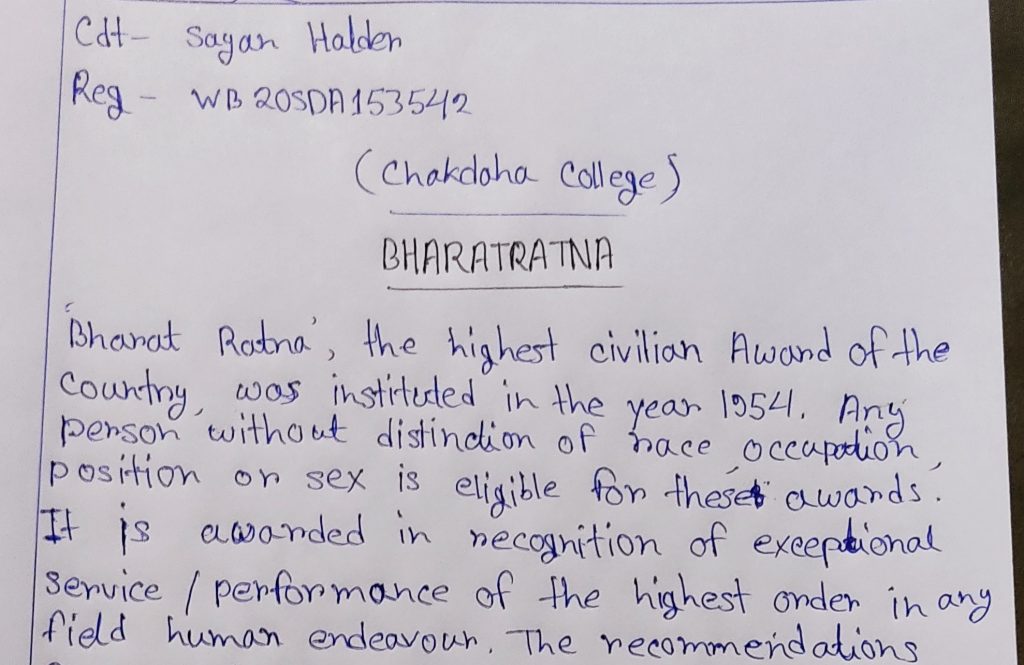 Cdt- Sayan Halder
Reg - WB20SDA153542
(Chakdaha College)
BHARATRATNA
'Bharat Ratna', the highest civilian Award of the
Country, was instituted in the year 1954. Any
person without distinction of race, occupation,
position or sex is eligible for these awards.
It is awarded in recognition of exceptional
service / performance of the highest order in any
field human endeavour. The recommendations